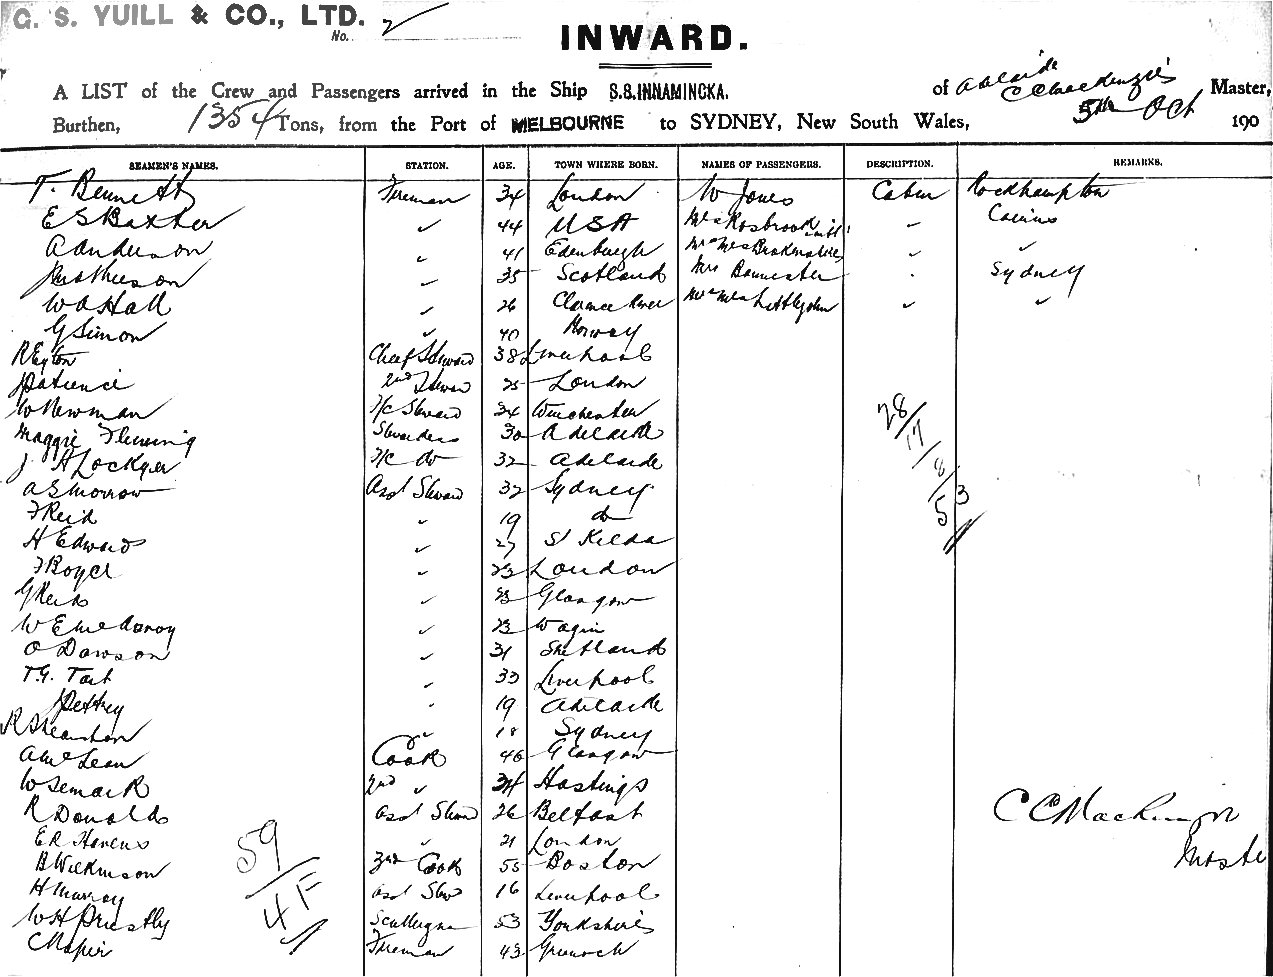 G. S. YUILL & CO., LTD.
No. 2
INWARD.
A LIST of the Crew and Passengers arrived in the Ship S.S. INNAMINCKA. of Adelaide C C Mackenzie Master,
Burthen, 1354 Tons, from the Port of MELBOURNE to SYDNEY, New South Wales, 5th Oct 190
SEAMEN'S NAMES. STATION. AGE. TOWN WHERE BORN. NAMES OF PASSENGERS. DESCRIPTION. REMARKS.
T. Bennett Fireman 34 London W Jones Cabin Rockhampton
E S Baxter " 44 USA Mrs Rosbrook " Cairns
A Anderson " 41 Edenburgh Mr Mrs " "
" 35 Scotland Mrs Bannester " Sydney
W A Hall " 26 Clarence River Mr Mrs Lettlejohn " "
G Simon " 40 Norway
R Eyton Cheif Steward 38 Liverpool
J Patience 2nd Stewar 25 London
W Newman F/C Steward 34 Winchester
Maggie Fleming Stewardess 30 Adelaide
J H Lockyer F/C do 32 Adelaide
A S Morrow Asst Steward 32 Sydney
F Reid " 19 do
H Edwards " 27 St Kilda
F Boyce " 23 London
G Reid " Glasgow
W E " 23
O Dawson " 31 Shetland
T.G. Tait " 33 Liverpool
J Pettey " 19 Adelaide
R " 18 Sydney
A McLean Cook 46 Glasgow
W Semark 2nd " 34 Hastings
R Donalds Asst Stewd 26 Belfast
E R Havens " 21 London
B Wilkinson 3rd Cook 55 Boston
H Murray Asst Stew 16 Liverpool
W H Priestly 53 Yorkshire
C Napier Fireman 43 Greenock
28/17/8/3
5
59/4F
C C Mackenzie
Maste